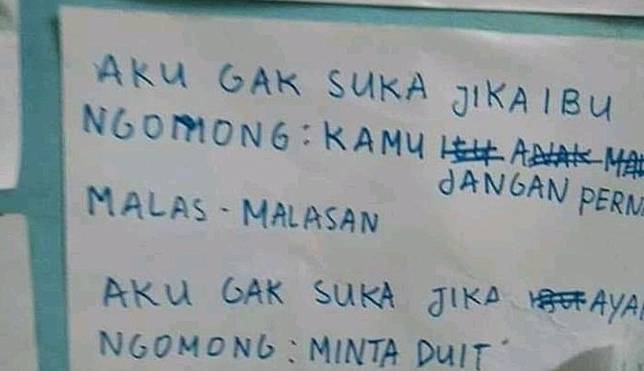 AKU GAK SUKA JIKA IBU
NGOMONG : KAMU
JANGAN PERN
MALAS - MALASAN
AKU GAK SUKA JIKA AYA
NGOMONG : MINTA DUIT